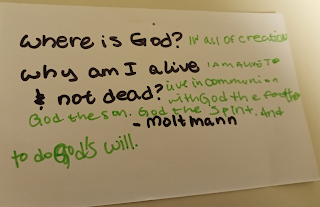 where is God? IN all of creation
why am I alive I AM ALIVE TO
& not dead? live in communion
with God the father
God the son. God the spirit. And
- Moltmann
to do God's will.